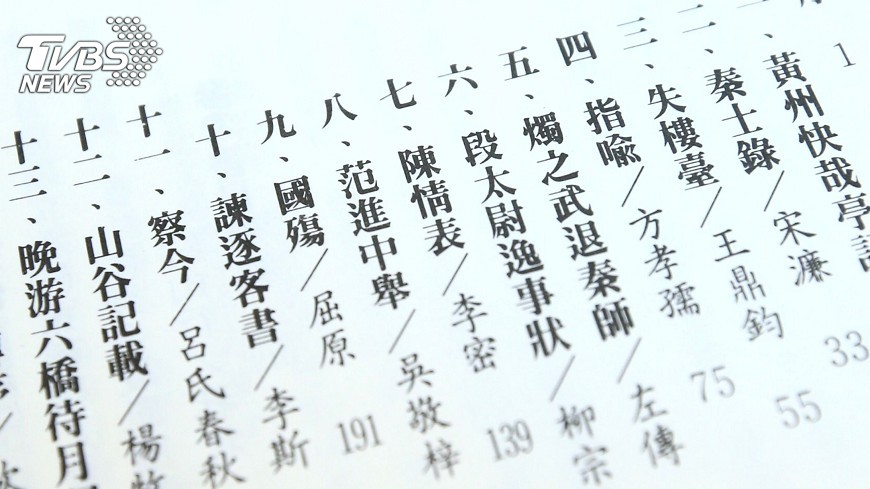 1
一、黃州快哉亭記
二、秦士錄/宋濂 33
三、失樓臺/王鼎鈞 55
四、指喻/方孝孺 75
五、燭之武退秦師/左傳
六、段太尉逸事狀/柳宗
七、陳情表/李密 139
八、范進中舉/吳敬梓
九、國殤/屈原 191
十、諫逐客書/李斯
十一、察今/呂氏春秋
十二、山谷記載/楊牧
十三、晚游六橋待月
TVBS
NEWS